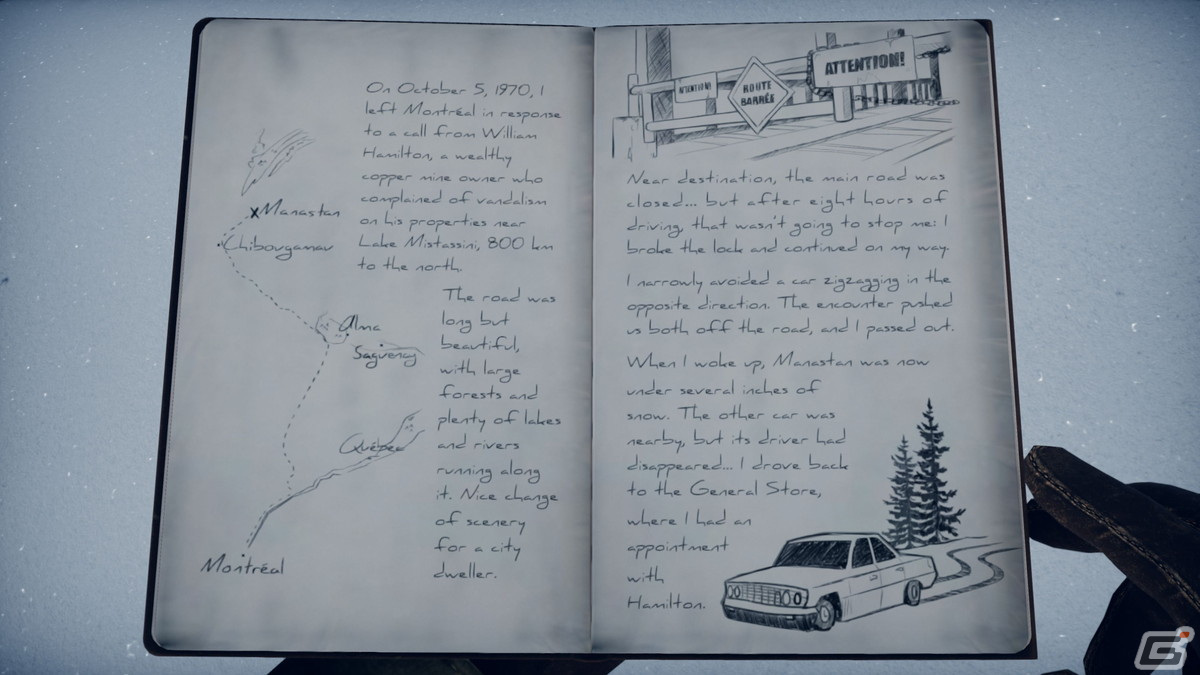 On October 5, 1970, I
left Montréal in response
to a call from William
Hamilton, a wealthy
copper mine owner who
complained of vandalism
on his properties near
Lake Mistassini, 800 km
to the north.
The road was
long but
beautiful,
with large
forests and
plenty of lakes
and rivers
running along
it. Nice change
of scenery
for a city
dweller.
X Manastan
Chibougamau
Alma
Saguenay
Québec
Montréal
ATTENTION!
ROUTE
BARRÉE
ATTENTION!
Near destination, the main road was
closed... but after eight hours of
driving, that wasn't going to stop me: I
broke the lock and continued on my way.
I narrowly avoided a car zigzagging in the
opposite direction. The encounter pushed
us both off the road, and I passed out.
When I woke up, Manastan was now
under several inches of
snow. The other car was
nearby, but its driver had
disappeared... I drove back
to the General Store,
where I had an
appointment
with
Hamilton.